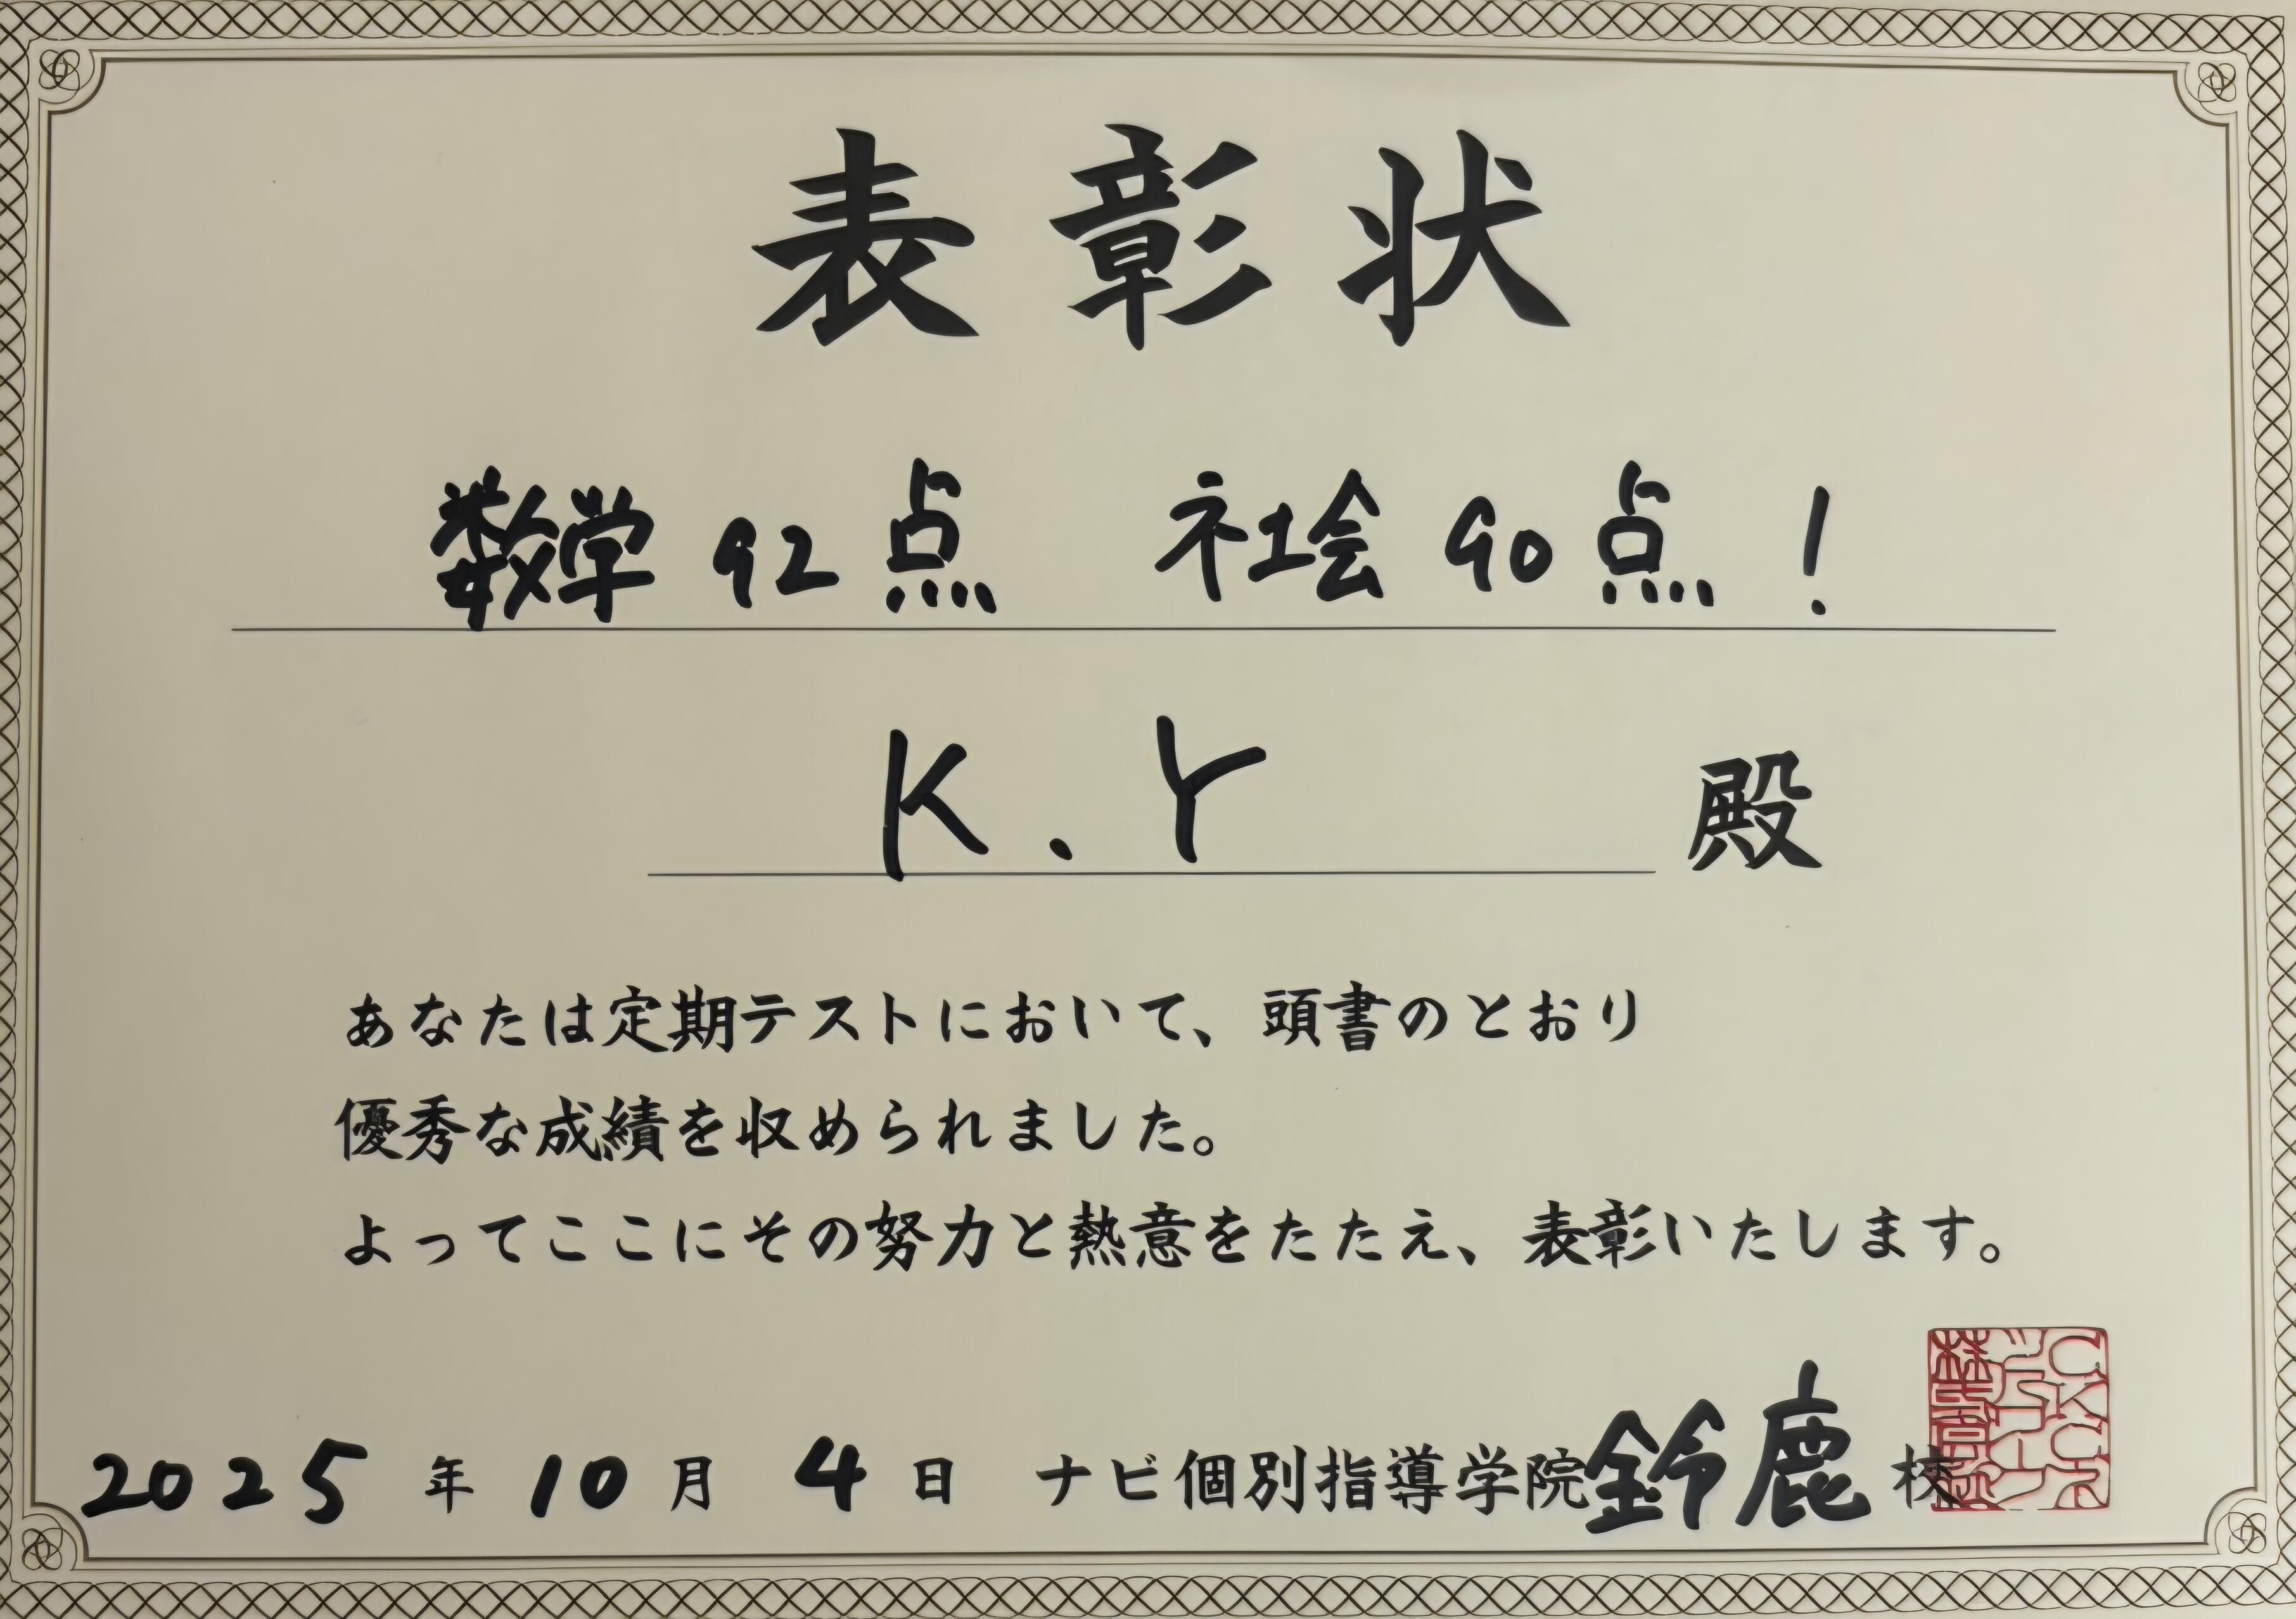 表彰状
数学 92点 社会 90点!
K.Y 殿
あなたは定期テストにおいて、頭書のとおり
優秀な成績を収められました。
よってここにその努力と熱意をたたえ、表彰いたします。
2025年10月4日 ナビ個別指導学院鈴鹿校